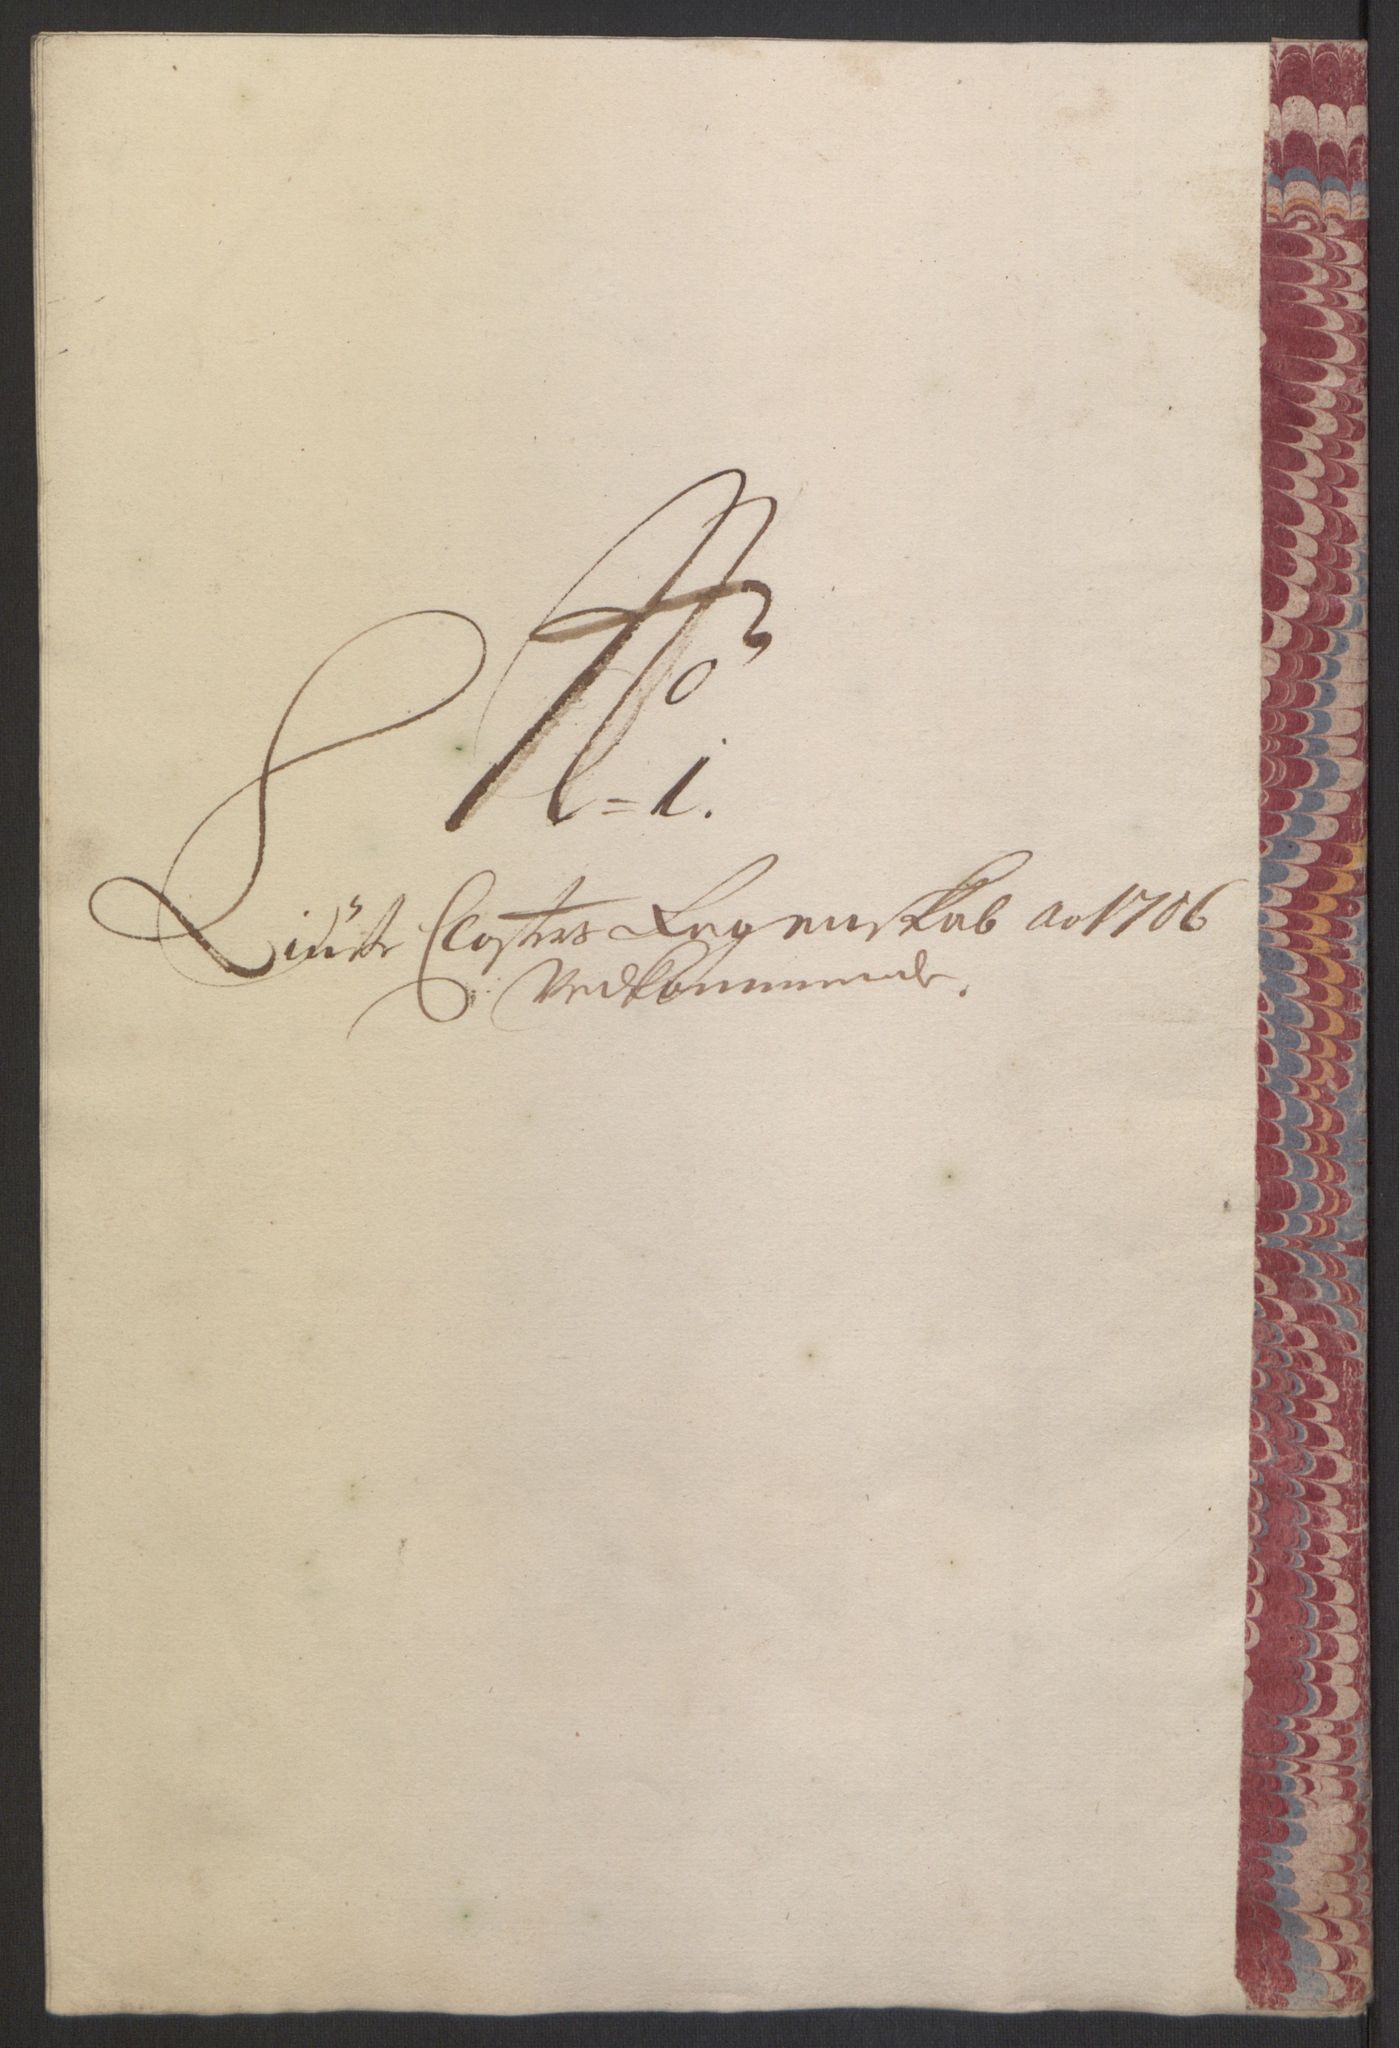 No = 1.
Liuse Closters Regenskab ao 1706
Vedkommende.